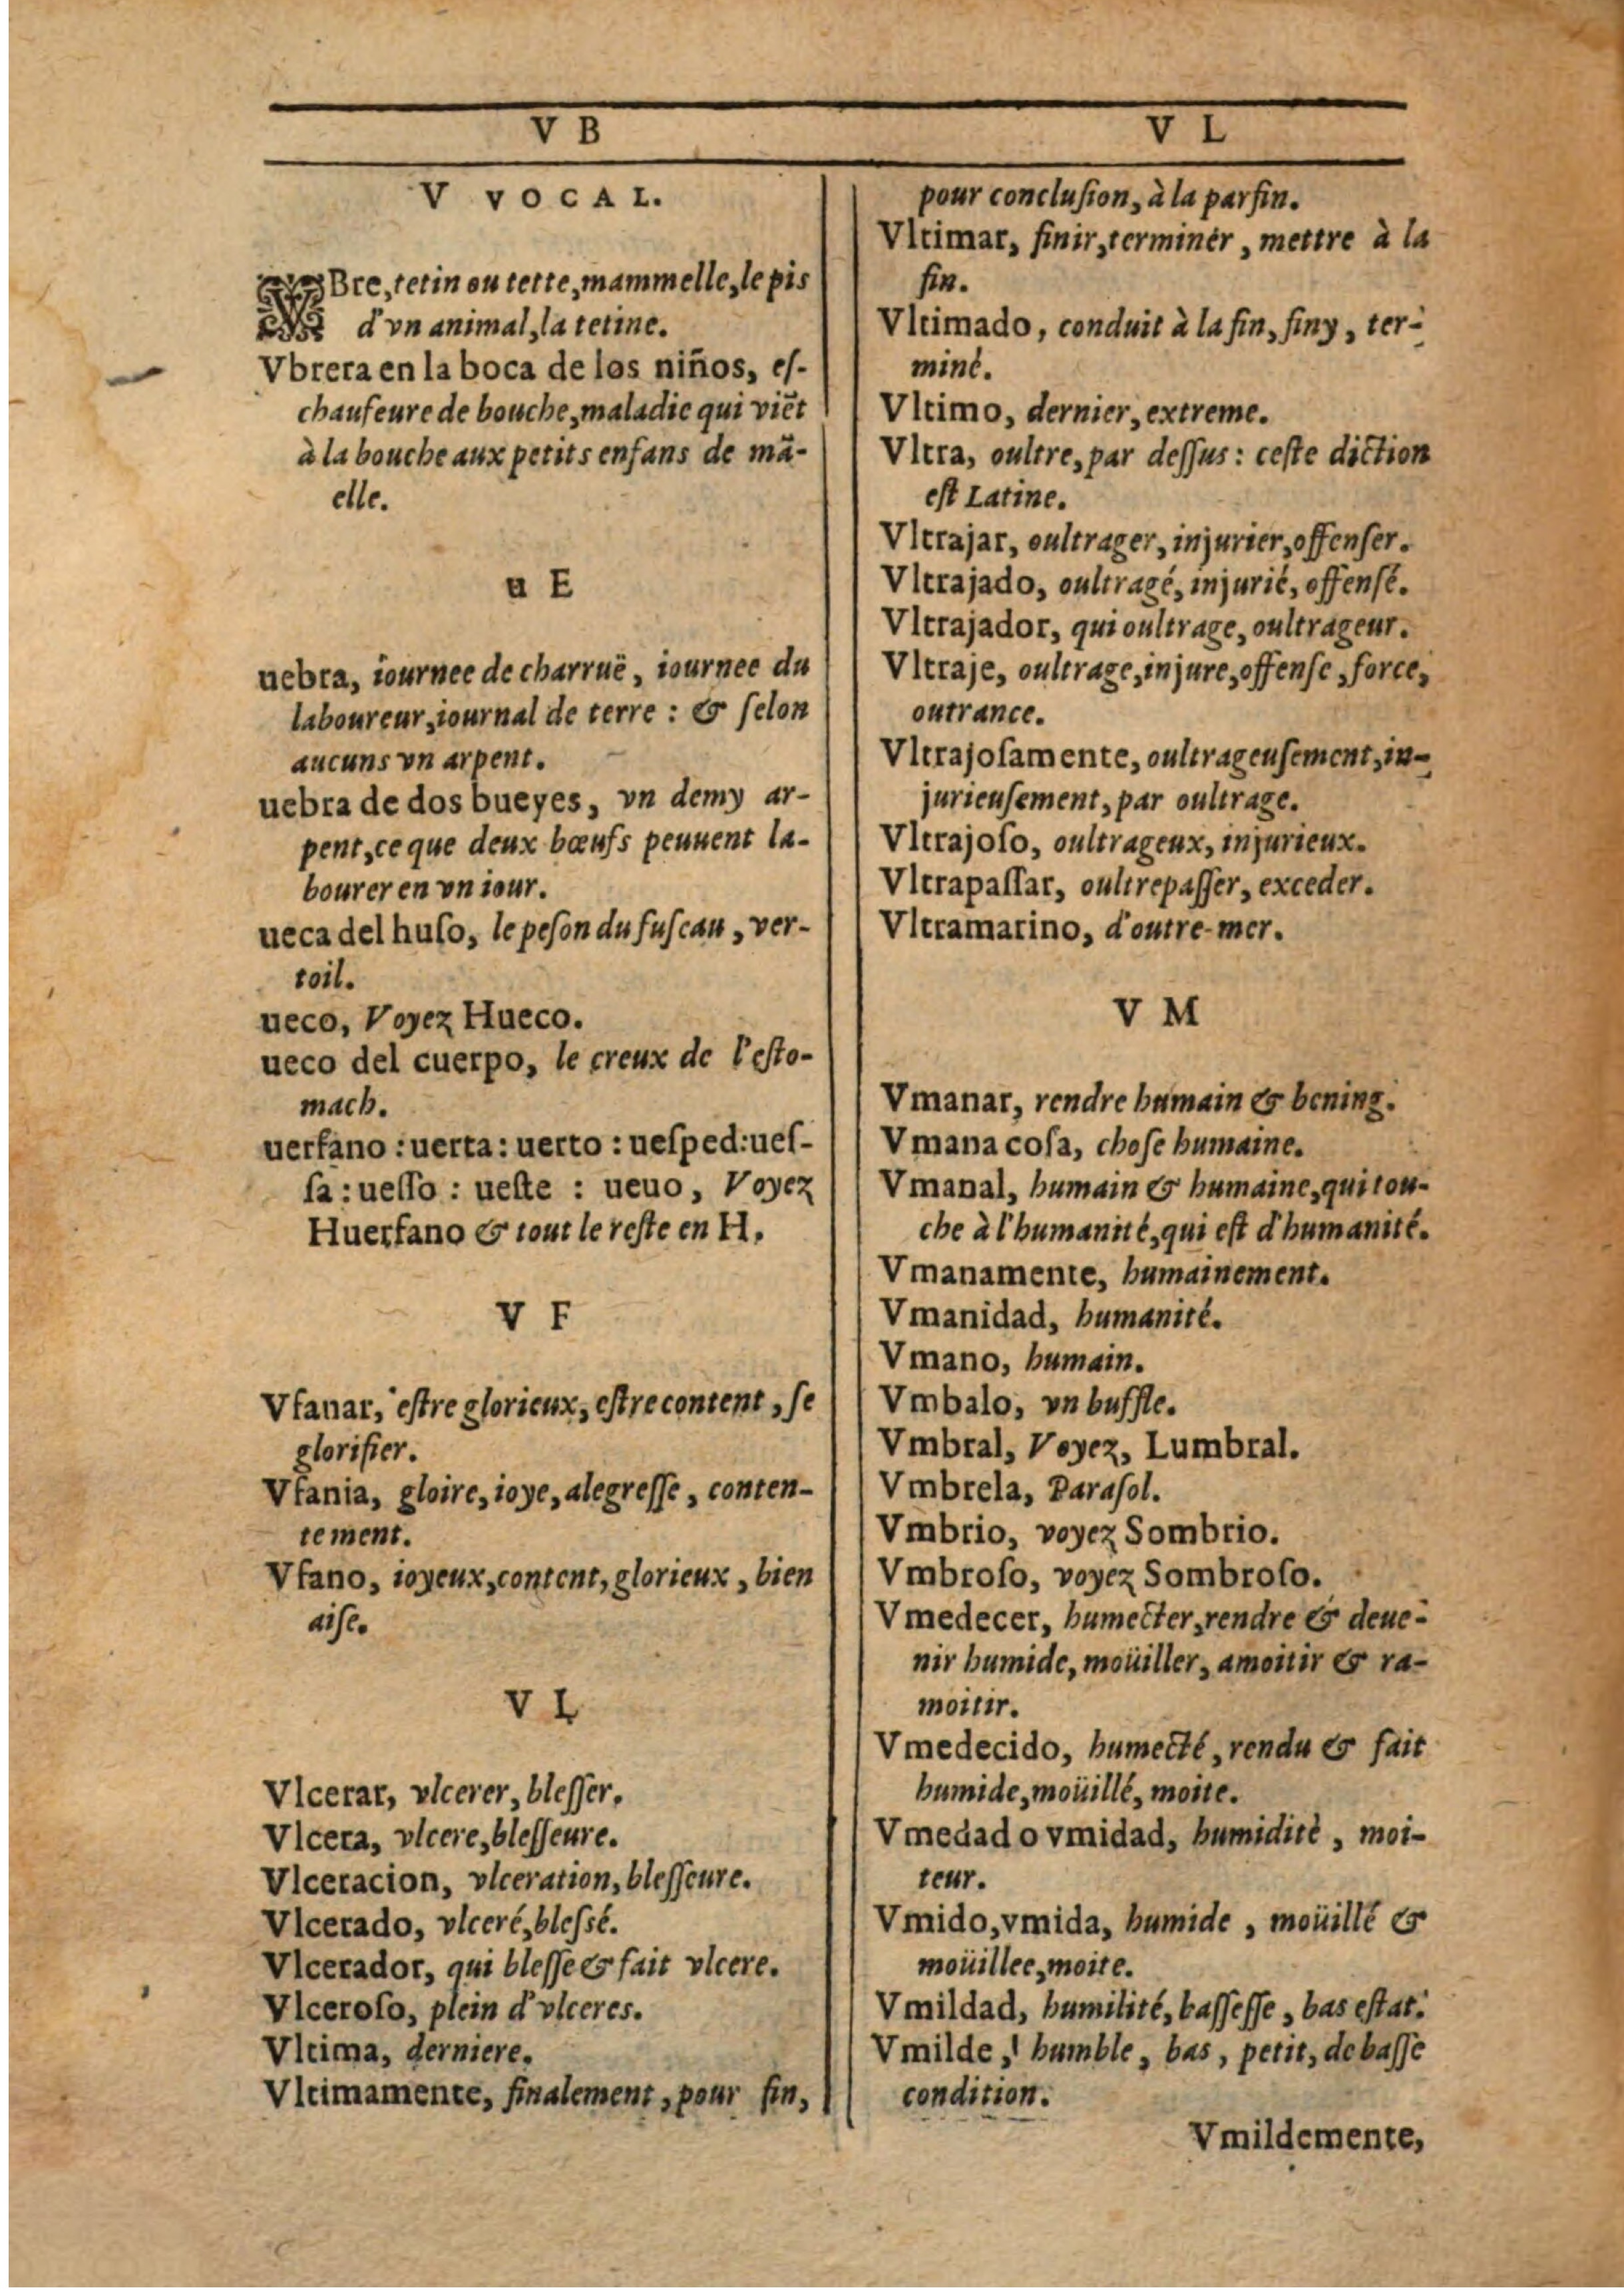 V B
V L
V VOCAL.
VBre, tetin ou tette, mammelle, le pis
d'vn animal, la tetine.
Vbrera en la boca de los niños, eſ-
chaufeure de bouche, maladie qui viẽt
à la bouche aux petits enfans de mã-
elle.
u E
uebra, iournee de charruë, iournee du
laboureur, iournal de terre : & ſelon
aucuns vn arpent.
uebra de dos bueyes, vn demy ar-
pent, ce que deux bœufs peuuent la-
bourer en vn iour.
ueca del huſo, le peſon du fuſeau, ver-
toil.
ueco, Voyez Hueco.
ueco del cuerpo, le creux de l'eſto-
mach.
uerfano : uerta : uerto : ueſped : ueſ-
ſa : ueſſo : ueſte : ueuo, Voyez
Huerfano & tout le reſte en H.
V F
Vfanar, eſtre glorieux, eſtre content, ſe
glorifier.
Vfania, gloire, ioye, alegreſſe, conten-
tement.
Vfano, ioyeux, content, glorieux, bien
aiſe.
V L
Vlcerar, vlcerer, bleſſer.
Vlcera, vlcere, bleſſeure.
Vlceracion, vlceration, bleſſeure.
Vlcerado, vlceré, bleſsé.
Vlcerador, qui bleſſe & fait vlcere.
Vlceroſo, plein d'vlceres.
Vltima, derniere.
Vltimamente, finalement, pour fin,
pour concluſion, à la parfin.
Vltimar, finir, terminer, mettre à la
fin.
Vltimado, conduit à la fin, finy, ter-
miné.
Vltimo, dernier, extreme.
Vltra, oultre, par deſſus : ceſte diction
eſt Latine.
Vltrajar, oultrager, injurier, offenſer.
Vltrajado, oultragé, injurié, offenſé.
Vltrajador, qui oultrage, oultrageur.
Vltraje, oultrage, injure, offenſe, force,
outrance.
Vltrajoſamente, oultrageuſement, in-
jurieuſement, par oultrage.
Vltrajoſo, oultrageux, injurieux.
Vltrapaſſar, oultrepaſſer, exceder.
Vltramarino, d'outre-mer.
V M
Vmanar, rendre humain & bening.
Vmana coſa, choſe humaine.
Vmanal, humain & humaine, qui tou-
che à l'humanité, qui eſt d'humanité.
Vmanamente, humainement.
Vmanidad, humanité.
Vmano, humain.
Vmbalo, vn buffle.
Vmbral, Voyez, Lumbral.
Vmbrela, Paraſol.
Vmbrio, voyez Sombrio.
Vmbroſo, voyez Sombroſo.
Vmedecer, humecter, rendre & deue-
nir humide, moüiller, amoitir & ra-
moitir.
Vmedecido, humecté, rendu & fait
humide, moüillé, moite.
Vmedad o vmidad, humidité, moi-
teur.
Vmido, vmida, humide, moüillé &
moüillee, moite.
Vmildad, humilité, baſſeſſe, bas eſtat.
Vmilde, humble, bas, petit, de baſſe
condition.
Vmildemente,